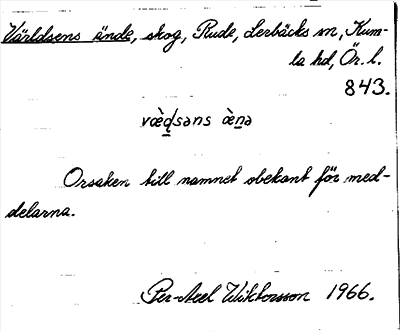 Världsens ände, skog, Rude, Lerbäcks sn, Kum-
la hd, Ör. l.
843.
væ̀ḍsəns æ̀n̲ə
Orsaken till namnet obekant för med-
delarna.
Per-Axel Wiktorsson 1966.